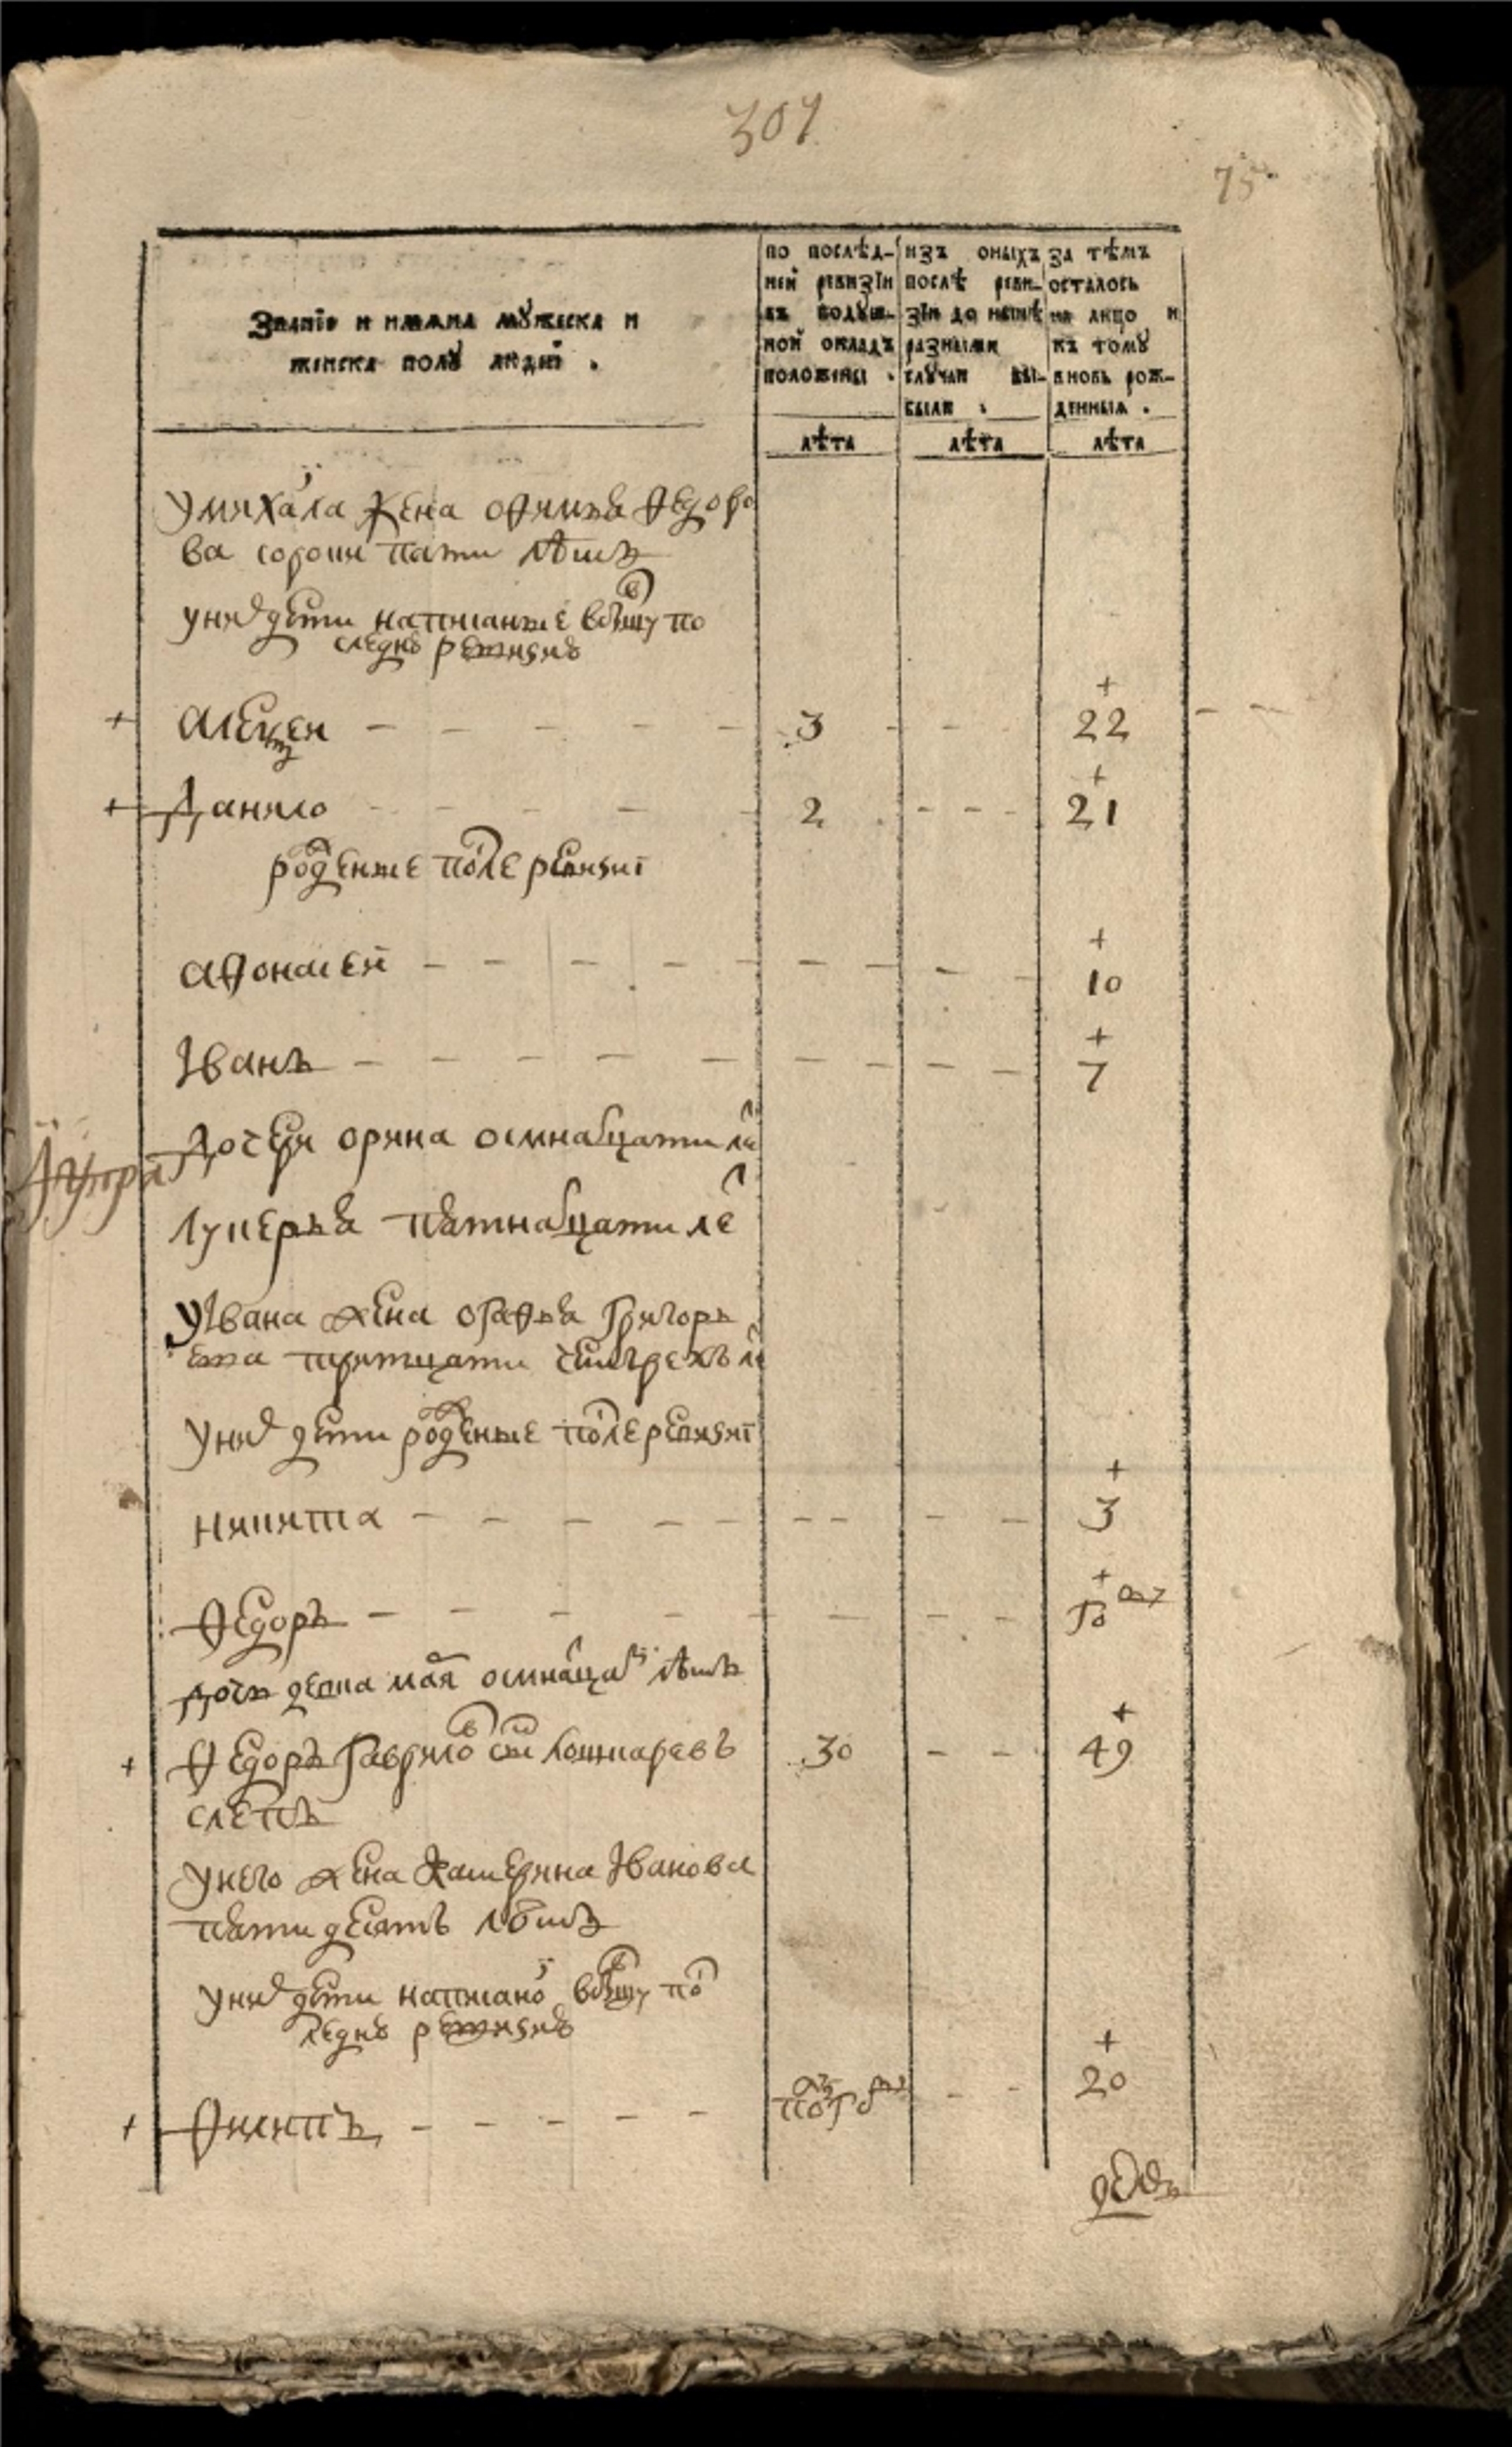 307
75
Званїе и имѧна мꙋжеска и
женска полꙋ людей .
по послѣд-
ней ревизїи
въ подꙋш-
ной окладъ
положены .
изъ оныхъ
послѣ реви-
зїи до нынѣ
разными
слꙋчаи вы-
были .
за тѣмъ
осталось
на лицо и
къ томꙋ
вновь рож-
денныѧ .
лѣта
лѣта
лѣта
умихаила жена офимья ѳедоро
ва сороки пяти лѣтъ
унихъ дети написанные вбывшу по
следнѣ ревизиѣ
+ алексеи — — — 3 — — + 22
+ Данило — — — 2 — — + 21
роженые после ревизиї
афонасей — — — + 10
Іванъ — — — + 7
дочеря орина осмнадцати ле
лукерья пятнадцати ле
уівана жена огафья григорь
ева тритцати четырехъ ле
унихъ дети роженые послеревизиї
никита — — — + 3
ѳедоръ — — — +
дочь осмнацать лѣтъ
+ ѳедоръ гаврило сн 30 — — + 49
слепъ
унего жена катерина Іванова
пятидесятъ лѣтъ
унихъ дети написано вбывшу пос
леднѣ ревизиѣ
+ Филипъ — — — + 20